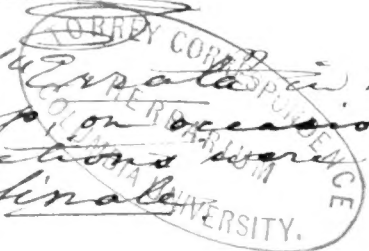 "Errata" in
TORREY CORRESPONDENCE
HERBARIUM
COLUMBIA UNIVERSITY.
on occasio
ctions were
finale.